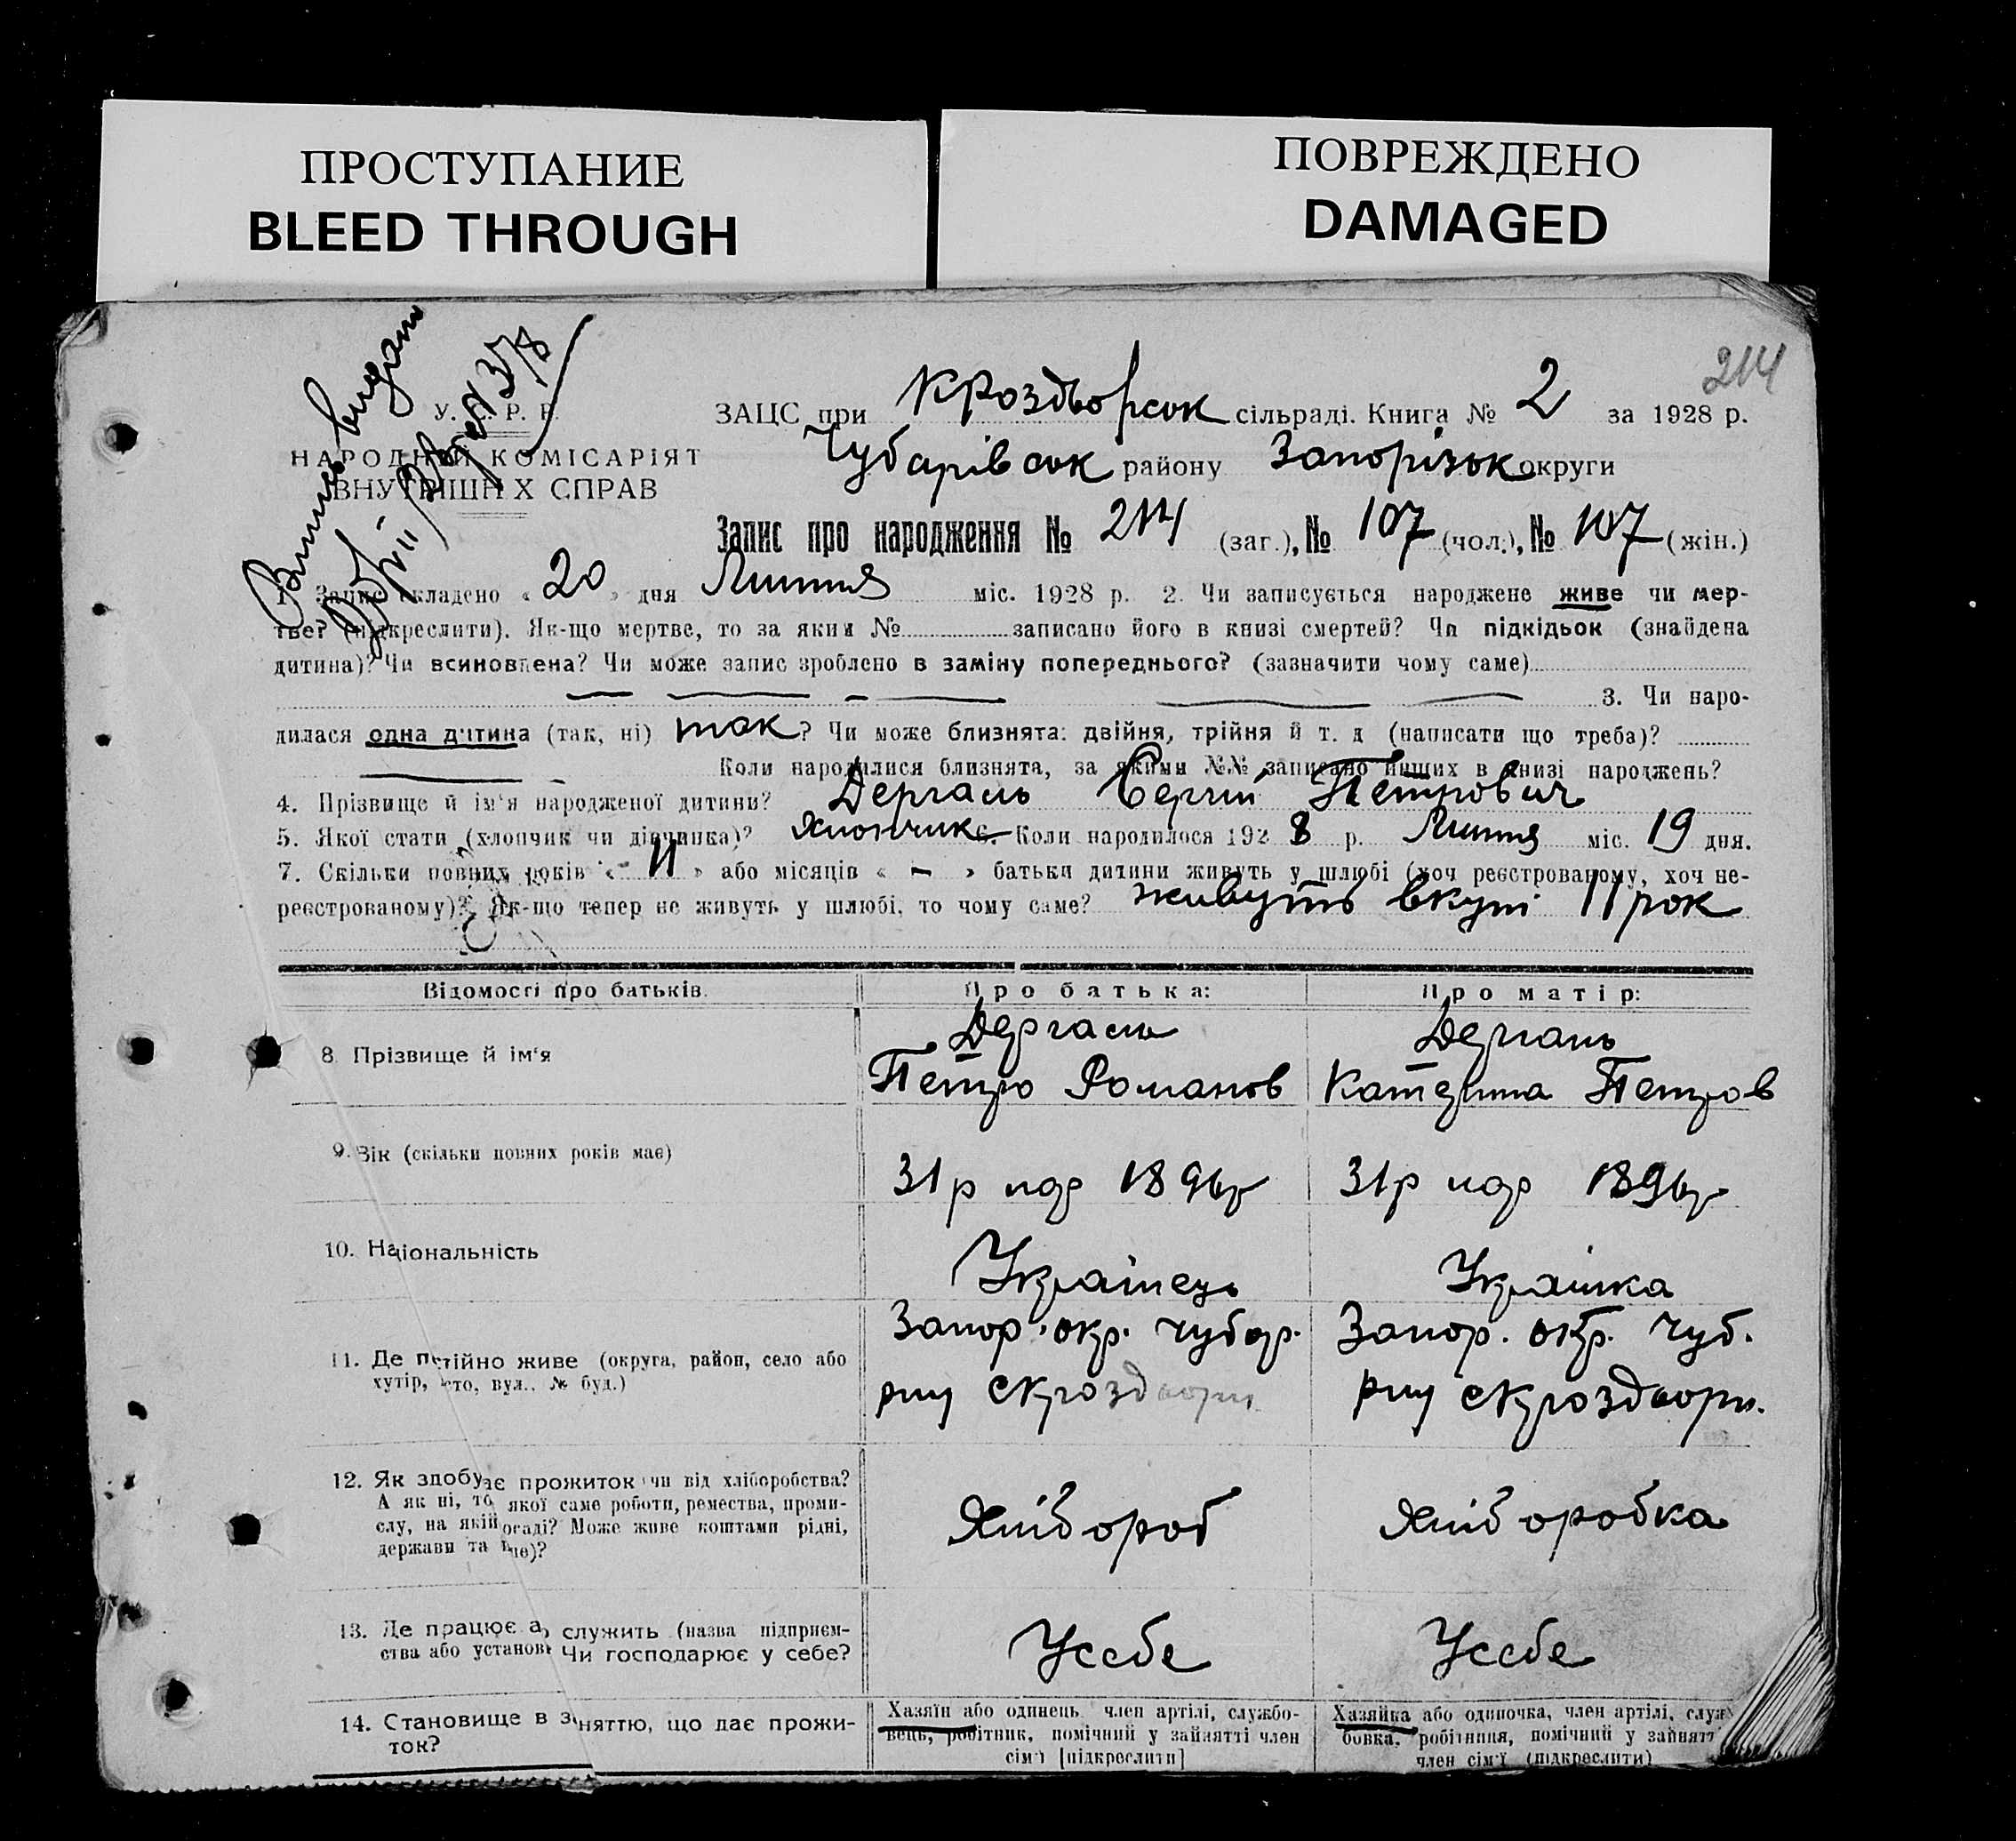 ПРОСТУПАНИЕ
BLEED THROUGH
ПОВРЕЖДЕНО
DAMAGED
214
Випись видано
У. С. Р. Р.
НАРОДНИЙ КОМІСАРІЯТ
ВНУТРІШНІХ СПРАВ
ЗАЦС при КРоздворськ сільраді. Книга № 2 за 1928 р.
Чубарівськ району Запорізьк округи
Запис про народження № 214 (заг.), № 107 (чол.), № 107 (жін.)
1. Запис складено « 20 » дня Липня міс. 1928 р. 2. Чи записується народжене живе чи мер-
тве? (підкреслити). Як-що мертве, то за яким № записано його в книзі смертей? Чи підкідьок (знайдена
дитина)? Чи всиновлена? Чи може запис зроблено в заміну попереднього? (зазначити чому саме)
3. Чи наро-
дилася одна дитина (так, ні) так? Чи може близнята: двійня, трійня й т. д (написати що треба)?
Коли народилися близнята, за якими №№ записано инших в книзі народжень?
4. Прізвище й ім'я народженої дитини? Дергаль Сергій Петрович
5. Якої стати (хлопчик чи дівчинка)? Хлопчик 6. Коли народилося 1928 р. Липня міс. 19 дня.
7. Скільки повних років « 11 » або місяців « — » батьки дитини живуть у шлюбі (хоч реєстрованому, хоч не-
реєстрованому)? Як-що тепер не живуть у шлюбі, то чому саме? живуть вкупі 11 рок
Відомості про батьків. Про батька: Про матір:
8. Прізвище й ім'я Дергаль Петро Романов Дергаль Катерина Петров
9. Вік (скільки повних років має) 31р нар 1896р 31р нар 1896р
10. Національність Українець Українка
11. Де постійно живе (округа, район, село або Запор. окр. Чубар. Запор. окр. Чуб.
хутір, місто, вул., № буд.) рну с Кроздвори рну с Кроздвори.
12. Як здобуває прожиток чи від хліборобства?
А як ні, то якої саме роботи, ремества, проми- Хлібороб Хліборобка
слу, на якій посаді? Може живе коштами рідні,
держави та инше)?
13. Де працює або служить (назва підприєм- Усебе Усебе
ства або установи Чи господарює у себе?
14. Становище в заняттю, що дає прожи-
ток?
Хазяїн або одинець, член артілі, службо-
вець, робітник, помічний у зайнятті член
сім'ї [підкреслити]
Хазяйка або одиночка, член артілі, служ
бовка, робітниця, помічний у зайнятт
член сім'ї (підкреслити)